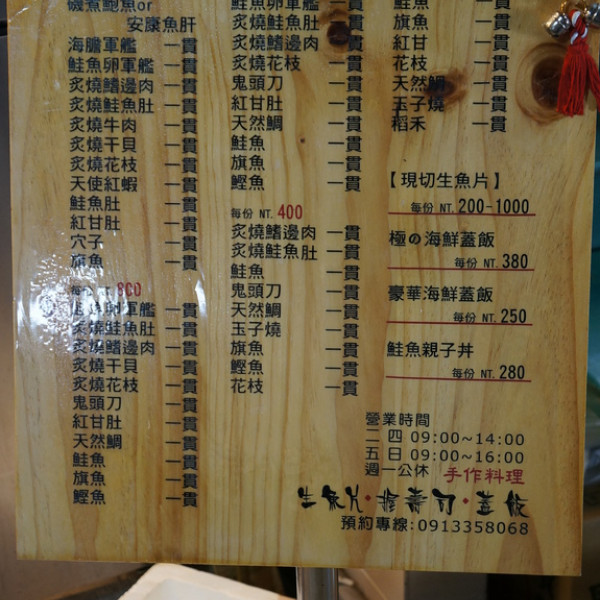 磯煮鮑魚or
安康魚肝
海膽軍艦 一貫
鮭魚卵軍艦 一貫
炙燒鰭邊肉 一貫
炙燒鮭魚肚 一貫
炙燒牛肉 一貫
炙燒干貝 一貫
炙燒花枝 一貫
天使紅蝦 一貫
鮭魚肚 一貫
紅甘肚 一貫
穴子 一貫
旗魚 一貫
每份 NT. 800
鮭魚卵軍艦 一貫
炙燒鮭魚肚 一貫
炙燒鰭邊肉 一貫
炙燒干貝 一貫
炙燒花枝 一貫
鬼頭刀 一貫
紅甘肚 一貫
天然鯛 一貫
鮭魚 一貫
旗魚 一貫
鰹魚 一貫
鮭魚卵軍艦 一貫
炙燒鮭魚肚 一貫
炙燒鰭邊肉 一貫
炙燒花枝 一貫
鬼頭刀 一貫
紅甘肚 一貫
天然鯛 一貫
鮭魚 一貫
旗魚 一貫
鰹魚 一貫
每份 NT. 400
炙燒鰭邊肉 一貫
炙燒鮭魚肚 一貫
鮭魚 一貫
鬼頭刀 一貫
天然鯛 一貫
玉子燒 一貫
旗魚 一貫
鰹魚 一貫
花枝 一貫
鮭魚 一貫
旗魚 一貫
紅甘 一貫
花枝 一貫
天然鯛 一貫
玉子燒 一貫
稻禾 一貫
【現切生魚片】
每份 NT. 200-1000
極の海鮮蓋飯
每份 NT. 380
豪華海鮮蓋飯
每份 NT. 250
鮭魚親子丼
每份 NT. 280
營業時間
二四 09:00~14:00
五日 09:00~16:00
週一公休 手作料理
生魚片·握壽司·蓋飯
預約專線:0913358068